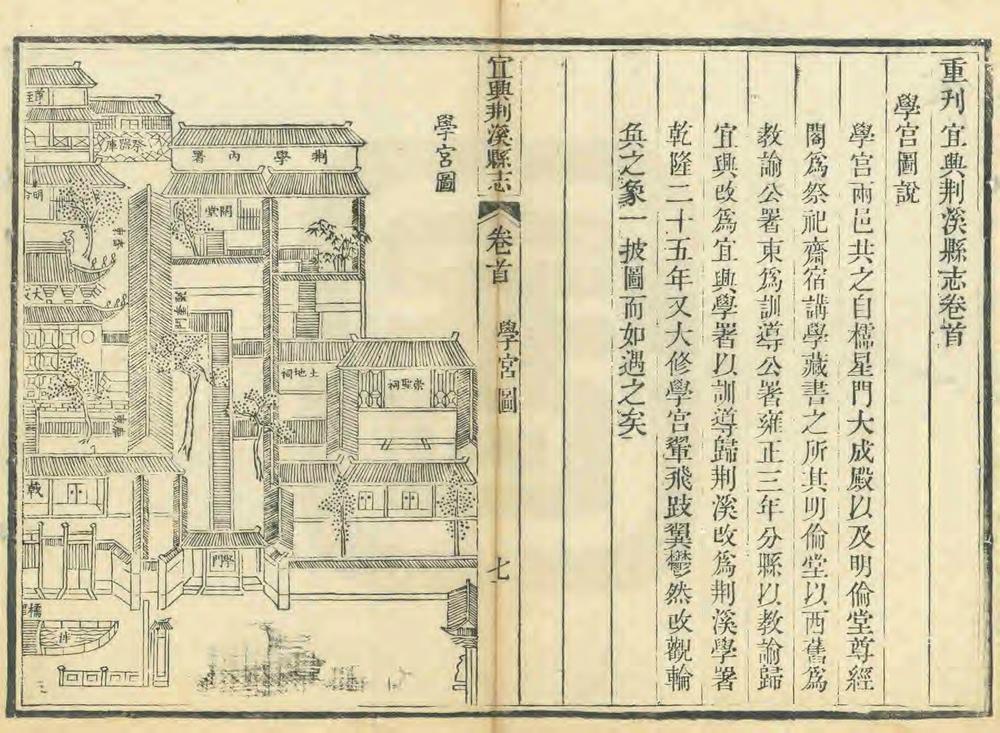 重刊宜興荆溪縣志卷首
學宮圖說
學宮兩邑共之自櫺星門大成殿以及明倫堂尊經
閣爲祭祀齋宿講學藏書之所其明倫堂以西舊爲
教諭公署東爲訓導公署雍正三年分縣以教諭歸
宜興改爲宜興學署以訓導歸荆溪改爲荆溪學署
乾隆二十五年又大修學宮翬飛跂翼鬱然改觀輪
奐之象一披圖而如遇之矣
宜興荆溪縣志
卷首
學宮圖
七
學宮圖
荆學內署
祭器庫
土地祠
崇聖祠
學門
戟